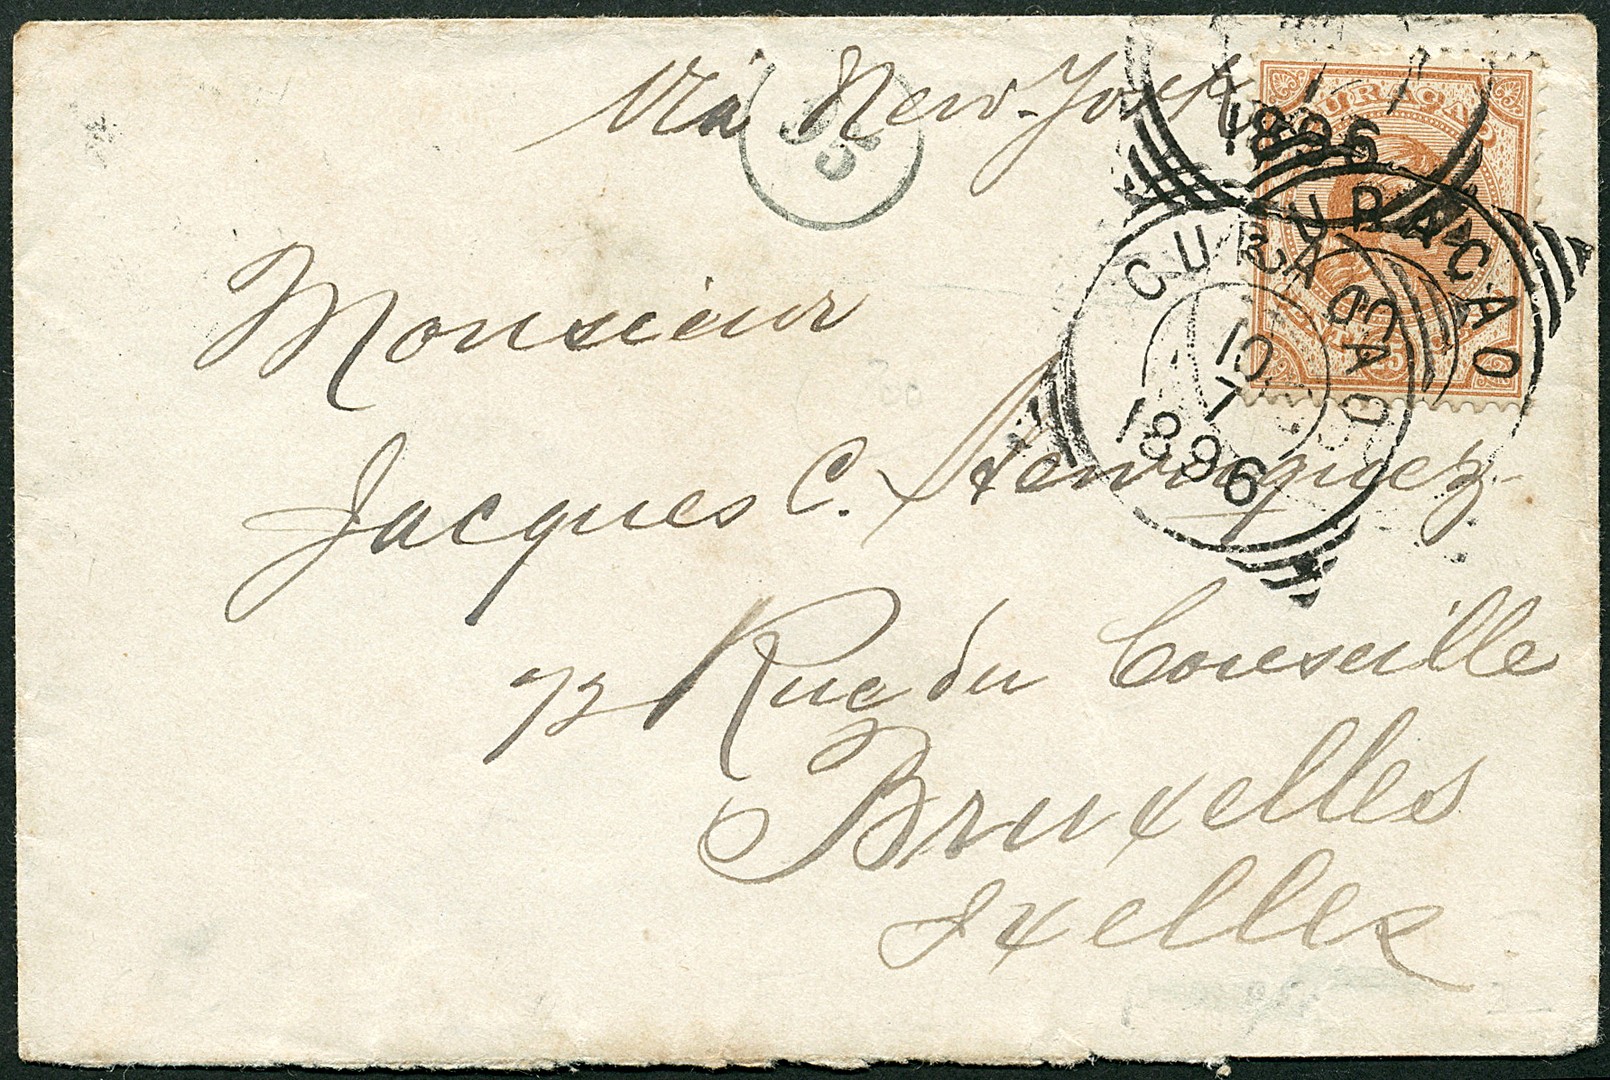 via New-York
55
CURAÇAO
1896
CURACAO
CURACAO
10
7
1896
Monsieur
Jacques C. Henriquez
72 Rue du Conseille
Bruxelles
Ixelles